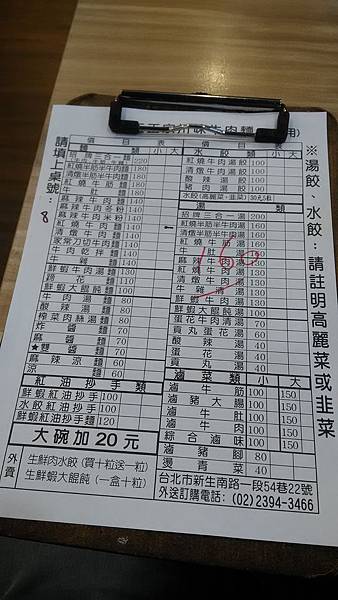 味牛肉麵
用)
請填上桌號:
8
※湯餃、水餃:請註明高麗菜或韭菜
價目表
麵類 小 大
招牌三合一麵 220
紅燒半筋半牛肉麵 180
清燉半筋半牛肉麵 180
紅燒牛筋麵 180
牛肚麵 180
麻辣牛肉麵 140
麻辣牛肉冬粉 140
麻辣牛肉米粉 140
紅燒牛肉麵 140
清燉牛肉麵 140
家常刀切牛肉麵 140
牛肉乾拌麵 140
牛雜麵 140
鮮蝦牛肉湯麵 130
蹄花麵 110
鮮蝦大餛飩麵 110
牛肉湯麵 80
酸辣湯麵 80
榨菜肉絲湯麵 80
炸醬麵 70
麻醬麵 70
★雙醬麵 70
麻辣涼麵 60
涼麵 60
紅油抄手類
鮮蝦紅油抄手 100
水餃紅油抄手 100
鮮蝦紅油抄手麵 120
大碗加20元
外賣
生鮮肉水餃(買十粒送一粒)
生鮮蝦大餛飩(一盒十粒)
價目表
水餃類 小 大
紅燒牛肉湯餃 100
清燉牛肉湯餃 100
酸辣湯餃 100
豬肉湯餃 100
水餃(高麗菜、韭菜) 30元5粒
湯類
招牌三合一湯 200
紅燒半筋半肉湯 160
清燉半筋半肉湯 160
紅燒牛筋湯 160
牛肚湯 160
麻辣牛肉湯 130
紅燒牛肉湯 130
清燉牛肉湯 130
牛雜清湯 130
鮮蝦牛肉湯 100
鮮蝦大餛飩湯 100
蛋花牛肉清湯 70
貢丸蛋花湯 60
酸辣湯 40
蛋花湯 40
貢丸湯 40
滷菜類 小 大
滷牛筋 100 150
滷豬大腸 100 150
滷牛肚 100 150
滷牛肉 100 150
綜合滷味 100 150
滷豬腳 80
燙青菜 40
台北市新生南路一段54巷22號
外送訂購電話:(02)2394-3466